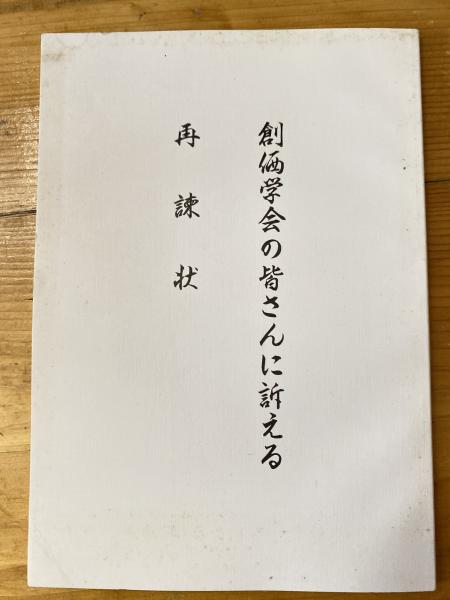 創価学会の皆さんに訴える
再諫状